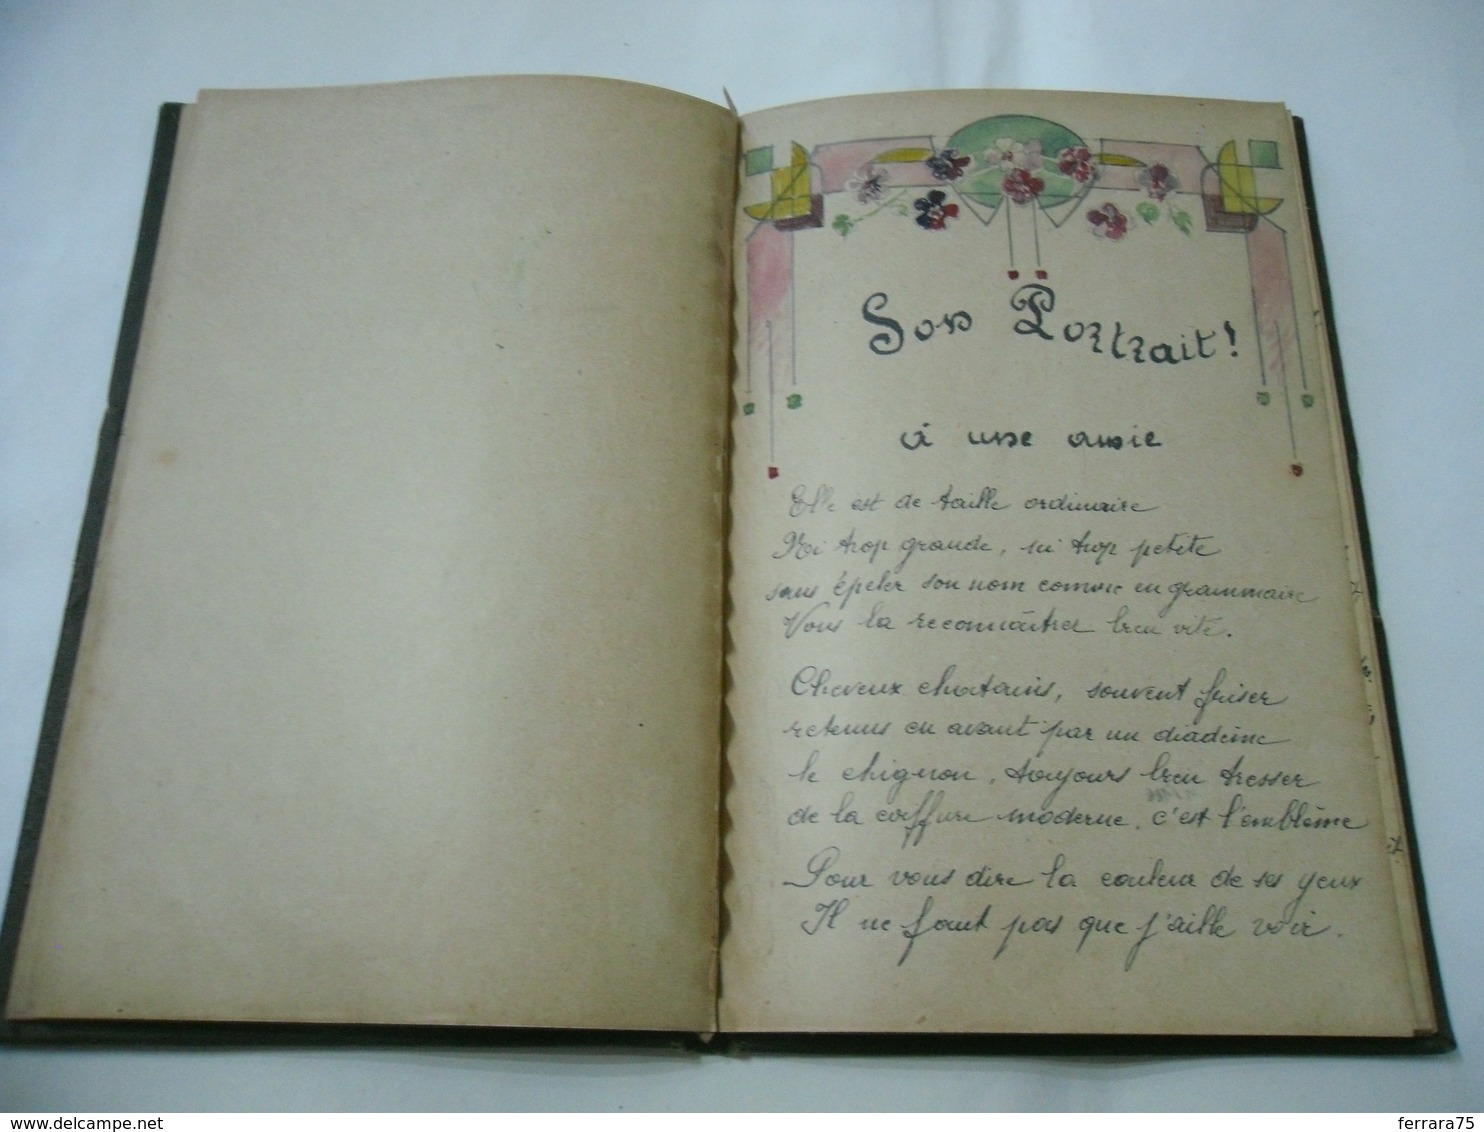 Son Portrait!
à une amie
Elle est de taille ordinaire
Ni trop grande, ni trop petite
sans épeler son nom comme en grammaire
Vous la reconnaîtrez bien vite.
Cheveux chatains, souvent friser
retenus en avant par un diadème
le chignon, toujours bien tresser
de la coiffure moderne, c'est l'emblème
Pour vous dire la couleur de ses yeux
Il ne faut pas que j'aille voir.
delcampe.net
ferrara75